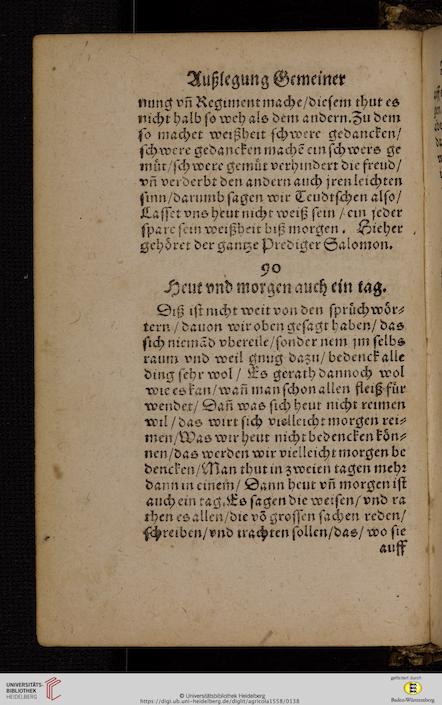 Außlegung Gemeiner
nung vñ Regiment mache/diesem thut es
nicht halb so weh als dem andern. Zu dem
so machet weißheit schwere gedancken/
schwere gedancken machē ein schwers ge
müt/schwere gemüt verhindert die freud/
vñ verderbt den andern auch jren leichten
sinn/darumb sagen wir Teudtschen also/
Lasset vns heut nicht weiß sein / ein jeder
spare sein weißheit biß morgen. Hieher
gehöret der gantze Prediger Salomon.
90
Heut vnd morgen auch ein tag.
Diß ist nicht weit von den sprüchwör⸗
tern / dauon wir oben gesagt haben/ das
sich niemãd vbereile/sonder nem jm selbs
raum vnd weil gnug dazu/ bedenck alle
ding sehr wol / Es gerath dannoch wol
wie es kan/wañ man schon allen fleiß für
wendet/ Dañ was sich heut nicht reimen
wil / das wirt sich vielleicht morgen rei⸗
men/Was wir heut nicht bedencken kön⸗
nen/das werden wir vielleicht morgen be
dencken/Man thut in zweien tagen mehr
dann in einem/ Dann heut vñ morgen ist
auch ein tag. Es sagen die weisen/ vnd ra
then es allen/die võ grossen sachen reden/
schreiben/vnd trachten sollen/das/ wo sie
auff
UNIVERSITÄTS-
BIBLIOTHEK
HEIDELBERG
© Universitätsbibliothek Heidelberg
https://digi.ub.uni-heidelberg.de/diglit/agricola1558/0138
gefördert durch
Baden-Württemberg